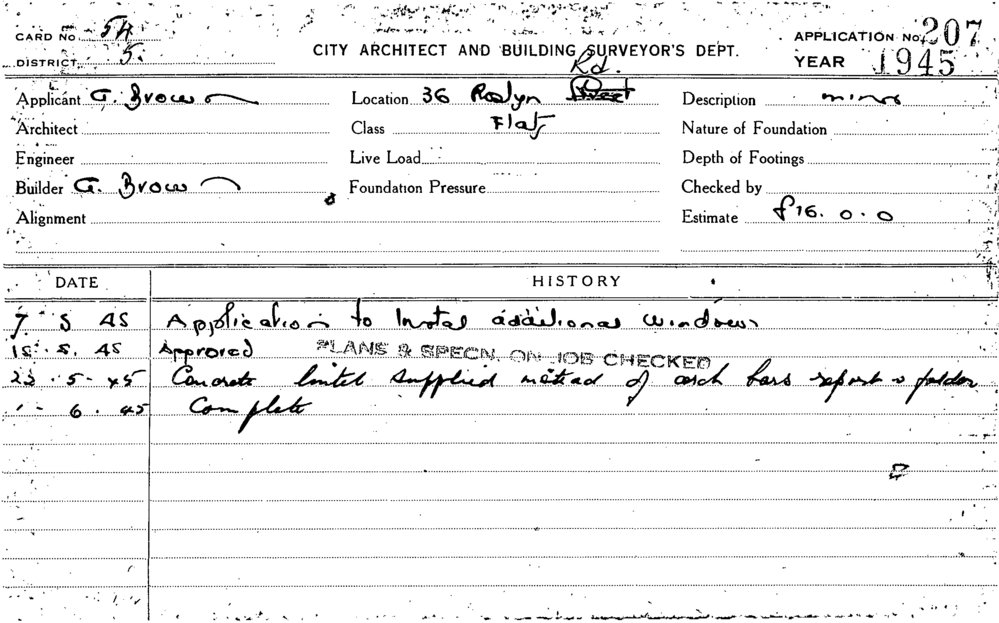 CARD No 54
APPLICATION No. 207
DISTRICT 5.
CITY ARCHITECT AND BUILDING SURVEYOR'S DEPT.
YEAR 1945
Applicant G. Brown
Location 36 Roslyn Street Rd.
Description minor
Architect
Class Flats
Nature of Foundation
Engineer
Live Load
Depth of Footings
Builder G. Brown
Foundation Pressure
Checked by
Alignment
Estimate £16. 0. 0
DATE
HISTORY
7 5 45 Application to Instal additional windows
15. 5. 45 Approved PLANS & SPECN. ON JOB CHECKED
23. 5. 45 Concrete lintel supplied instead of arch bars report folder
6. 45 Complete